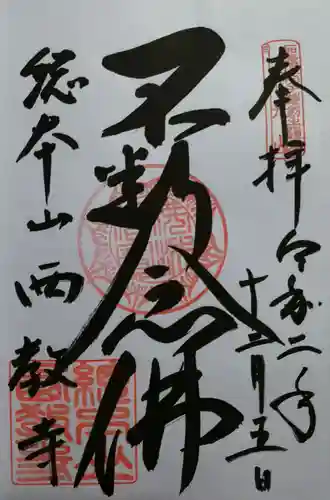 奉拝
令和二年
十二月五日
不断念佛
総本山西教寺